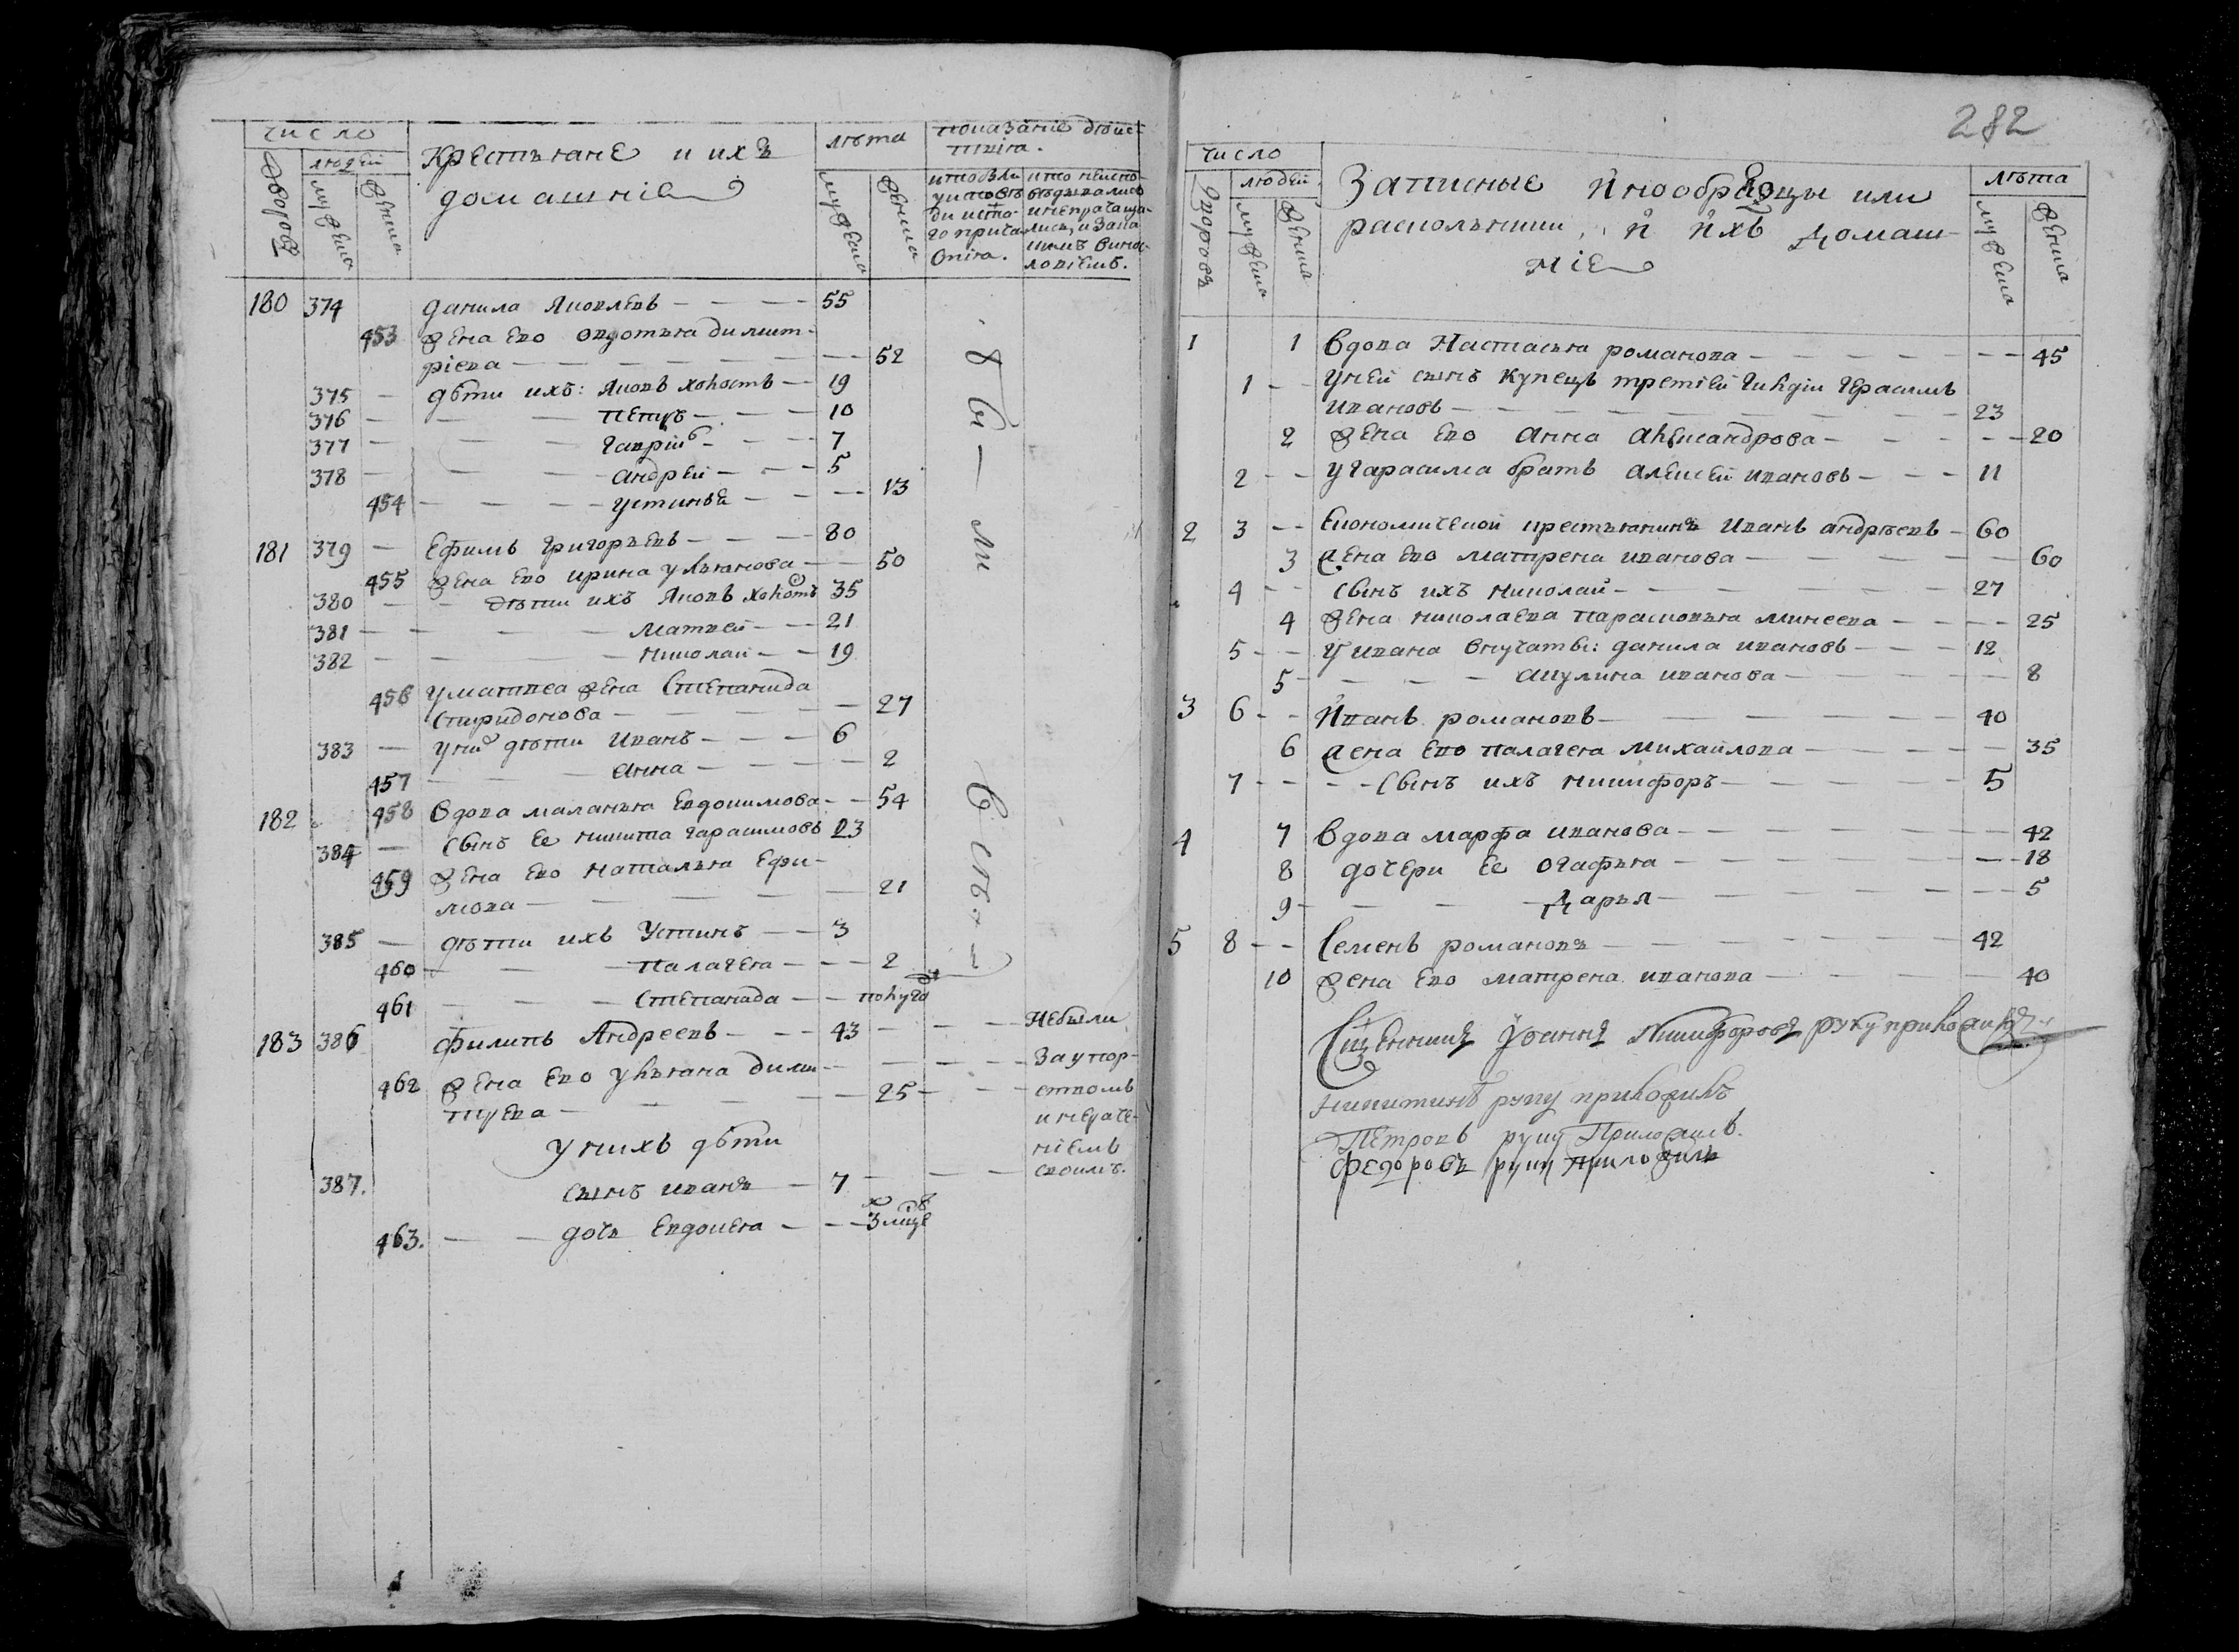 число
людей
дворовъ
мужеска
женска
Крестьяне и ихъ
домашнїе
лѣта
мужеска
женска
показанїе дѣйс-
твїя.
Кто былъ
у исповѣ
ди и с҃та-
го прича
стїя.
180 374 Данила Яковлевъ — 55
453 жена ево Овдотья Димит-
рїева — 52
375 — дѣти ихъ: Яковъ холостъ — 19
376 — Петръ — 10
377 — Гаврїилъ — 7
378 — Андрей — 5
454 — Устинья — 13
181 379 — Ефимъ Григорьевъ — 80
455 жена ево Ирина Ульянова — 50
380 — дѣти ихъ Яковъ холостъ 35
381 — Матвей — 21
382 — Николай — 19
456 у Матвеа жена Степанида
Спиридонова — 27
383 — у нихъ дѣти Иванъ — 6
457 — Анна — 2
182 458 Вдова Маланья Евдокимова — 54
384 — Сынъ ее Никита Гарасимовъ 23
459 жена ево Наталья Ефи-
мова — 21
385 — дѣти ихъ Устинъ — 3
460 — Палагея — 2
461 — Степанида — полугода
183 386 Филипъ Андреевъ — 43 — Небыли
462 жена ево Ульяна Дими- — За упор-
трева — 25 — ствомъ
и нераче-
у нихъ дѣти нїемъ
387. сынъ Иванъ — 7 — своимъ.
463. — дочь Евдокея —
бы — ли
в сѣ
282
число
людей
дворовъ
мужеска
женска
Записные Инообрядцы или
раскольники, и ихъ домаш-
нїе
лѣта
мужеска
женска
1 1 Вдова Настасья Романова — 45
1 — у ней сынъ купецъ третїей гилдїи Герасимъ
Ивановъ — 23
2 жена ево Анна Александрова — 20
2 — у Гарасима братъ Алексей Ивановъ — 11
2 3 — Економической крестьянинъ Иванъ Андрѣевъ — 60
3 жена ево Матрена Иванова — 60
4 — Сынъ ихъ Николай — 27
4 жена Николаева Парасковья Минеева — 25
5 — у Ивана внучаты: Данила Ивановъ — 12
5 — Акулина Иванова — 8
3 6 — Иванъ Романовъ — 40
6 жена ево Палагея Михайлова — 35
7 — Сынъ ихъ Никифоръ — 5
4 7 Вдова Марфа Иванова — 42
8 дочери ее Огафья — 18
9 — Дарья — 5
5 8 — Семенъ Романовъ — 42
10 жена ево Матрена Иванова — 40
Сщ҃енникъ Иоаннъ Никифоровъ руку приложилъ
Никитинъ руку приложилъ
Петровъ руку Приложилъ.
Федоровъ руку приложилъ